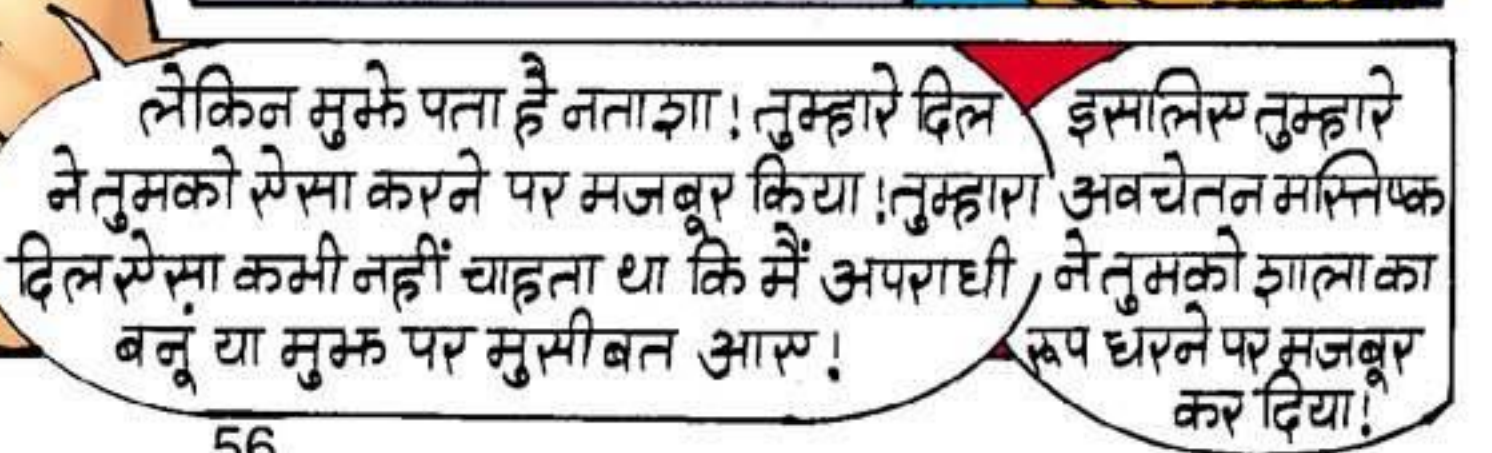 लेकिन मुझे पता है नताशा! तुम्हारे दिल
ने तुमको ऐसा करने पर मजबूर किया! तुम्हारा
दिल ऐसा कभी नहीं चाहता था कि मैं अपराधी
बनूं या मुझ पर मुसीबत आए!
इसलिए तुम्हारे
अवचेतन मस्तिष्क
ने तुमको शालाका
रूप धरने पर मजबूर
कर दिया!
56